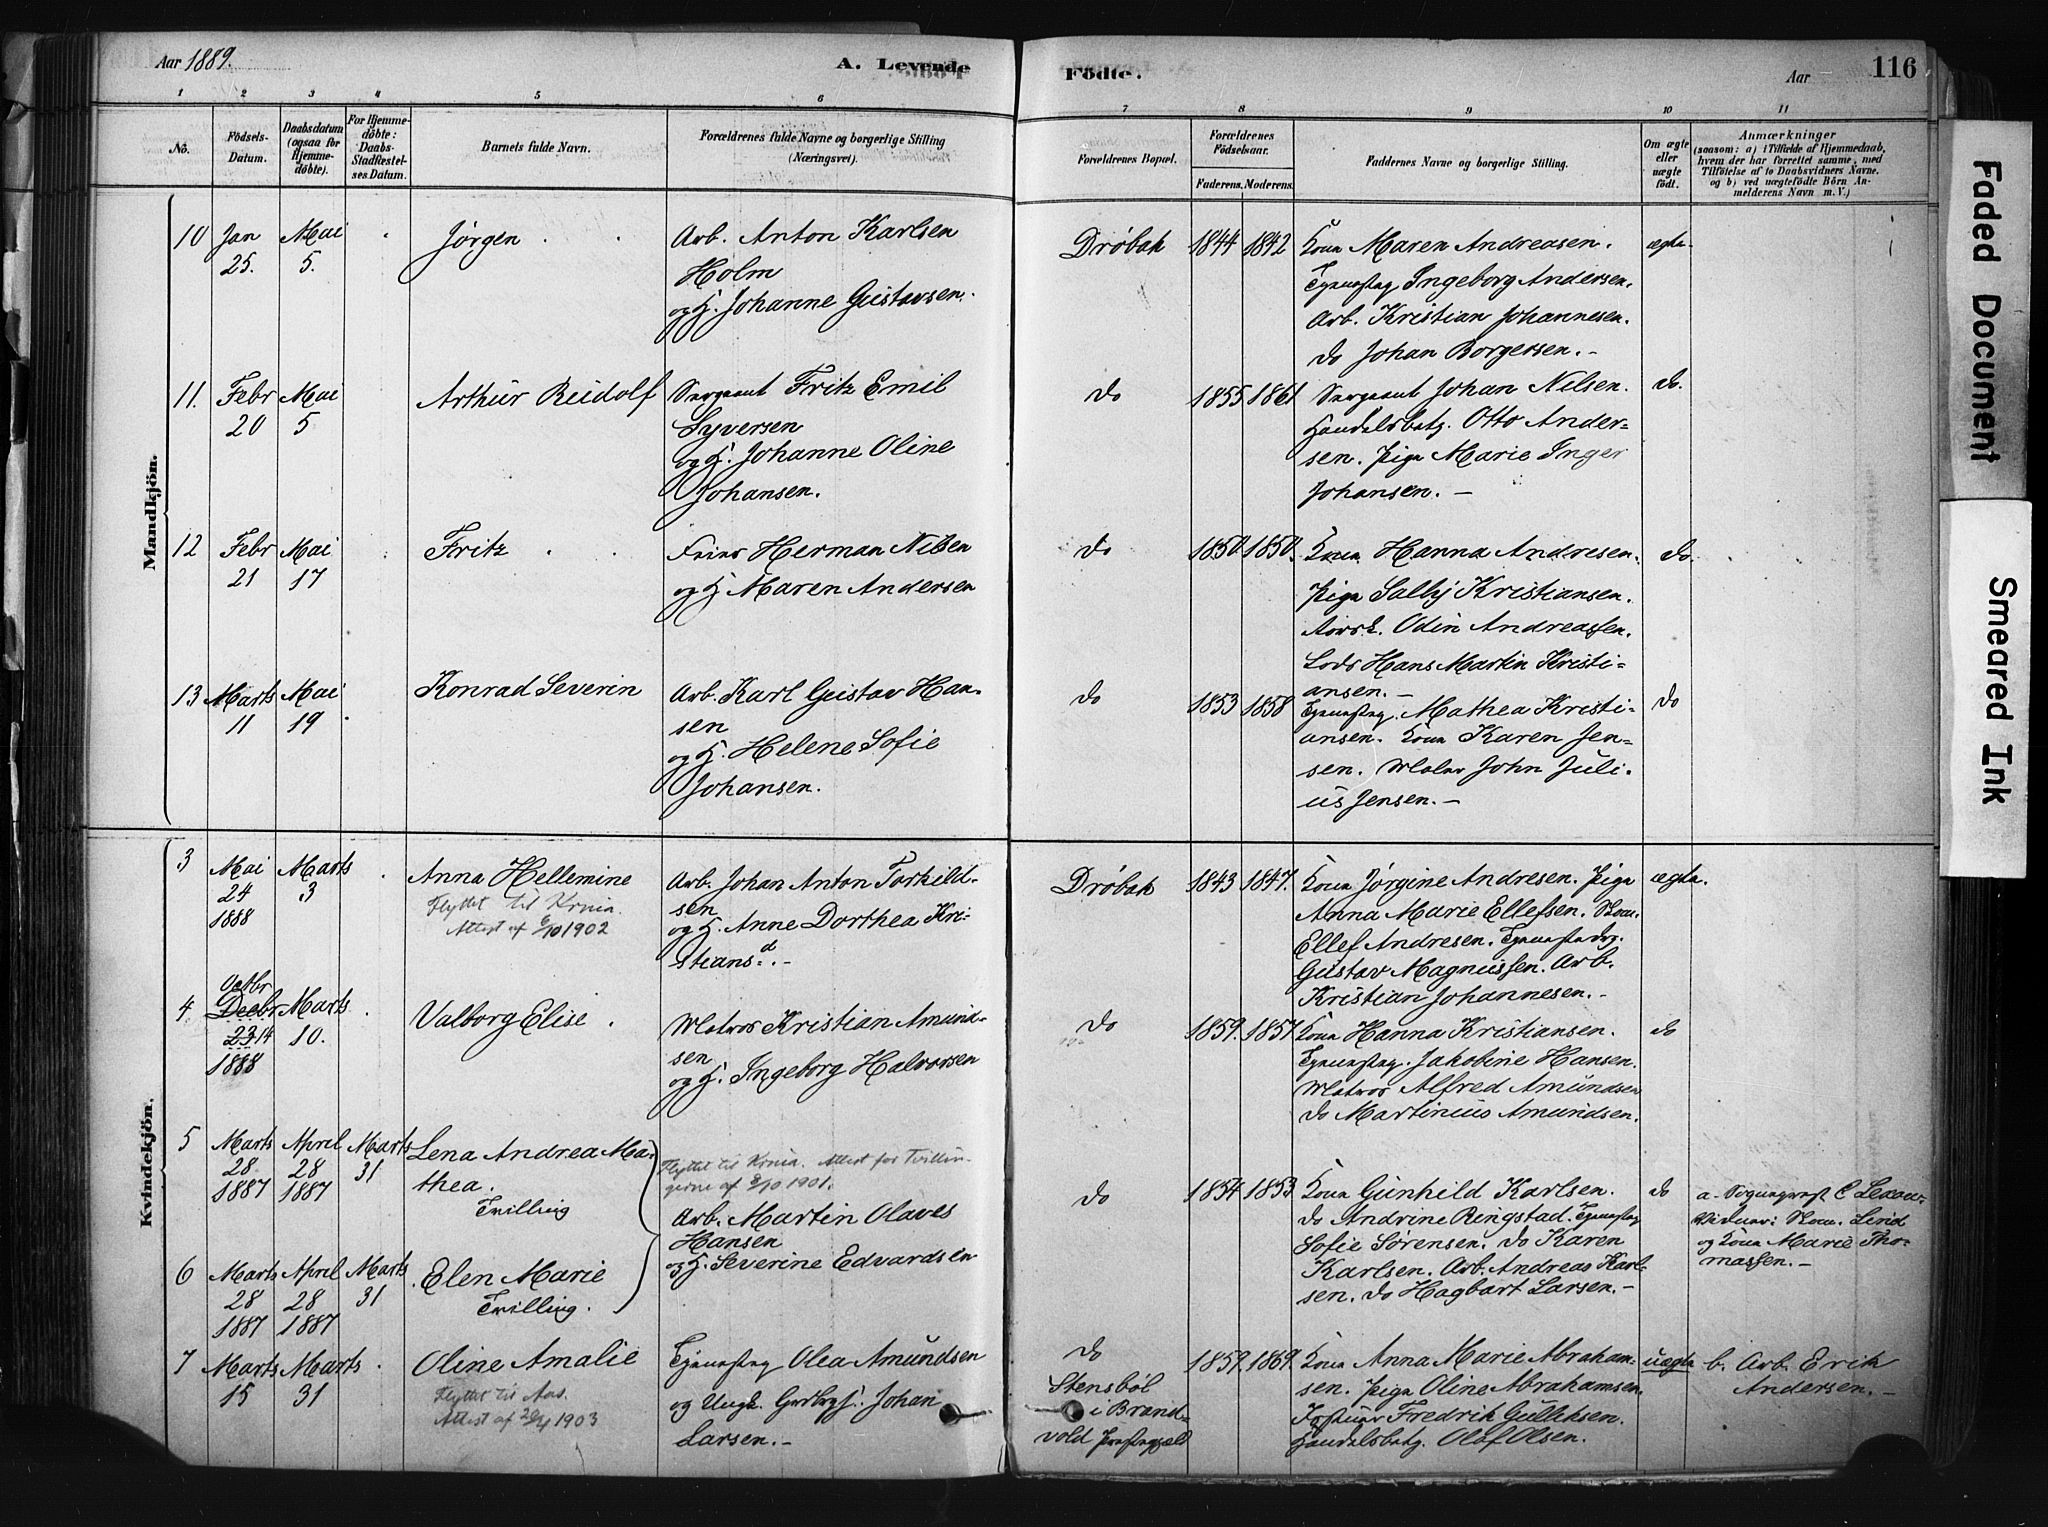 Aar 1889.
A. Levende
Födte.
Aar
116
1 2 3 4 5 6
7 8 9 10 11
No.
Födsels-
Datum.
Daabsdatum
(ogsaa for
Hjemme-
döbte).
For Hjemme-
döbte:
Daabs-
Stadfæstel-
ses Datum.
Barnets fulde Navn.
Forældrenes fulde Navne og borgerlige Stilling
(Næringsvei).
Forældrenes Bopæl.
Forældrenes
Födselsaar.
Faderens. Moderens.
Faddernes Navne og borgerlige Stilling.
Om ægte
eller
uægte
födt.
Anmærkninger
(saasom: a) i Tilfælde af Hjemmedaab,
hvem der har forrettet samme, med
Tilföielse af to Daabsvidners Navne,
og b) ved uægtefödte Börn An-
melderens Navn m. V.)
Mandkjön.
10
Jan
25.
Mai
5.
Jørgen
Arb. Anton Karlsen
Holm
og H. Johanne Gustavsen.
Drøbak
1844 1842
Kona Maren Andreasen.
Tjenestpg Ingeborg Andersen.
Arb. Kristian Johannesen.
do Johan Borgersen. –
ægte.
11.
Febr
20
Mai
5
Arthur Rudolf
Sergeant Fritz Emil
Syversen
og H. Johanne Oline
Johansen.
do
1855 1861
Sergeant Johan Nilsen.
Handelsbetj. Otto Ander-
sen. Pige Marie Inger
Johansen. –
do.
12
Febr
21
Mai
17
Fritz
Herman Nilsen
og H Maren Andersen
do
1850 1850.
Kona Hanna Andresen.
Pige Kristiansen.
Odin Andreassen.
Lods Hans Martin Kristi-
ansen. –
do.
13
Marts
11
Mai
19
Konrad Severin
Arb. Karl Gustav Han-
sen
og H. Helene Sofie
Johansen.
do
1853 1858
Tjenestpg. Mathea Kristi-
ansen. Kona Karen Jen-
sen. Maler John Juli-
us Jensen. –
do
Kvindekjön.
3
Mai
24
1888
Marts
3
Anna Hellemine
Flyttet til Krnia.
Attest af 6/10 1902
Arb. Johan Anton Torkild-
sen
og H. Anne Dorthea Kri-
stiansd. –
Drøbak
1843 1847.
Kona Jørgine Andresen. Pige
Anna Marie Ellefsen. Skom.
Ellef Andresen. Tjenestedrg.
Gustav Magnussen. Arb.
Kristian Johannesen. –
ægte.
4
Octbr
Decbr
23 14
1888
Marts
10.
Valborg Elise
Matros Kristian Amund-
sen
og H. Ingeborg Halvorsen
do
1859. 1857
Kona Hanna Kristiansen.
Tjenestpg. Jakobine Hansen.
Matros Alfred Amundsen
do Martinius Amundsen.
do
5
Marts
28
1887
April
28
1887
Marts
31
Lena Andrea Ma-
thea.
Tvilling
Flyttet til Krnia. Attest for Tvillin-
gerne af 3/10 1901.
Arb. Martin Olaves
Hansen
og H. Severine Edvardsen
do
1854 1853
Kona Gunhild Karlsen.
do Andrine Ringstad. Tjenestpg
Sofie Sørensen. do Karen
Karlsen. Arb. Andreas Karl-
sen. do Hagbart Larsen. –
do
a. Sogneprest C
Vidner: Skom. Lind
og Kona Marie Tho-
massen. –
6
Marts
28
1887
April
28
1887
Marts
31
Elen Marie
Tvilling.
7
Marts
15
Marts
31
Oline Amalie
Flyttet til Aas.
Attest af 20/4 1903
Tjenestpg Olea Amundsen
og Ungk. Johan
Larsen. –
do
Stensböl
i Brand-
vold Prestegjeld
1859. 1869.
Kona Anna Marie Abraham-
sen. Pige Oline Abrahamsen.
Fredrik Gulliksen.
Handelsbetj. Olaf Olsen.
uægte
b. Arb. Erik
Andersen. –
Faded Document
Smeared Ink